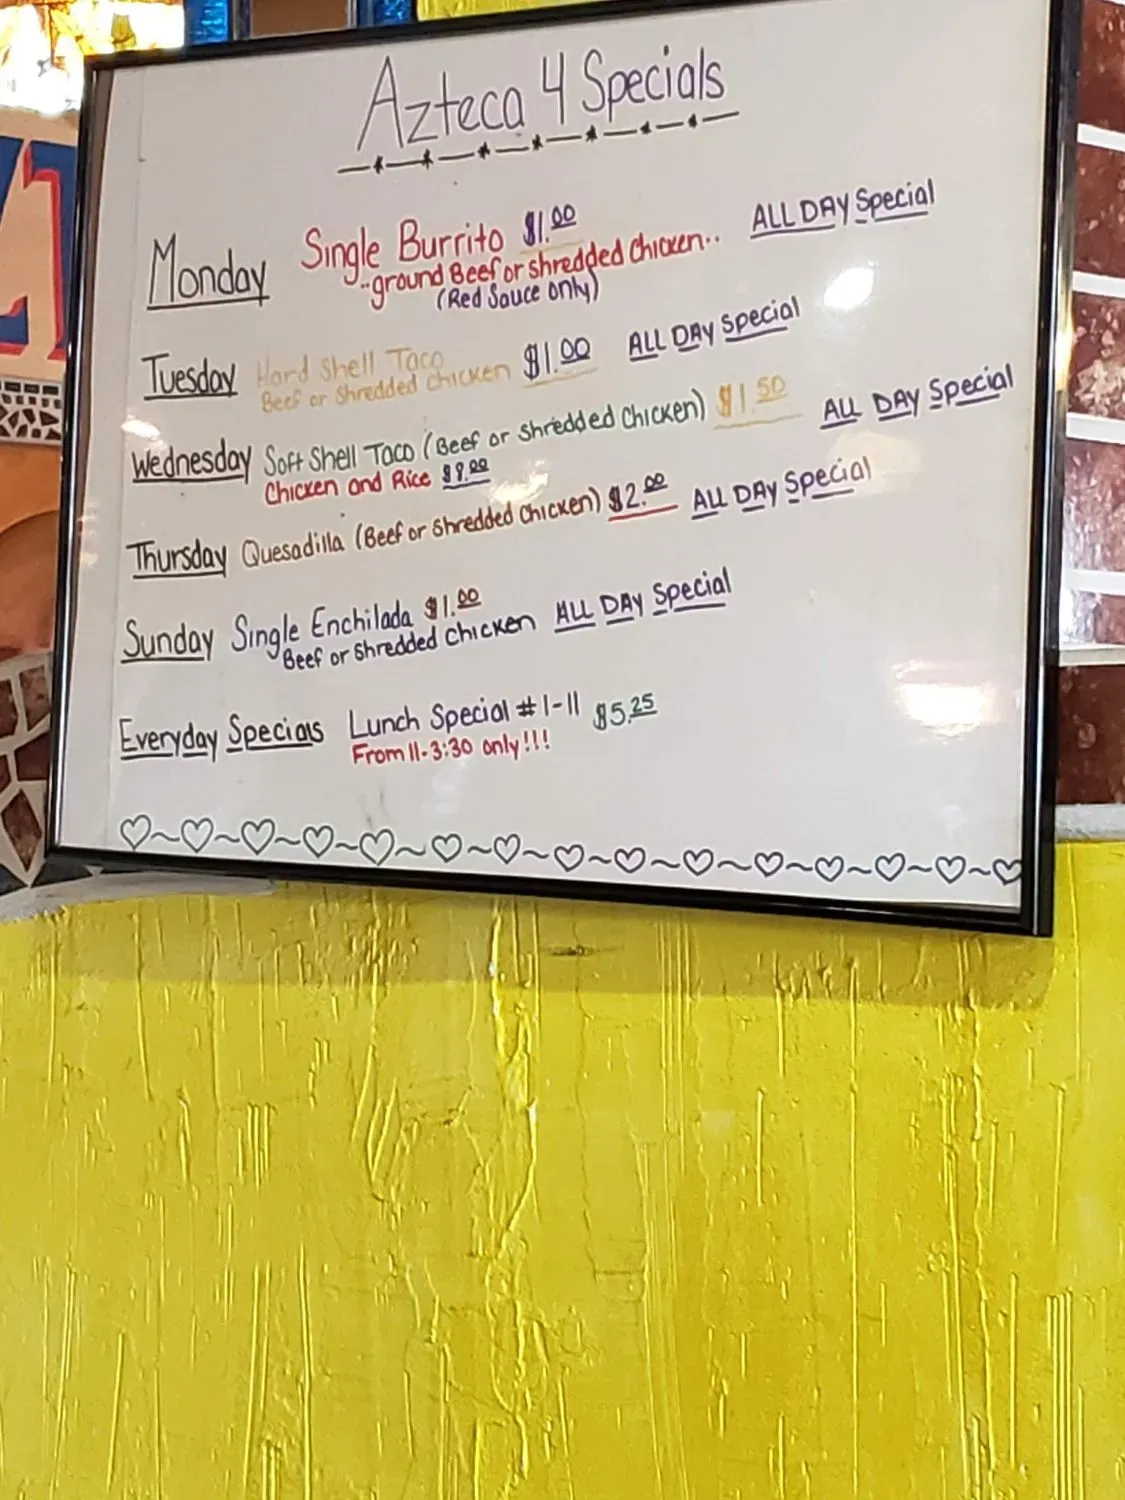 Azteca 4 Specials
Monday Single Burrito $1.00 ALL DAY Special
..ground Beef or shredded chicken..
(Red Sauce only)
Tuesday Hard Shell Taco $1.00 ALL DAY Special
Beef or Shredded chicken
Wednesday Soft Shell Taco (Beef or shredded chicken) $1.50 ALL DAY Special
Chicken and Rice $9.00
Thursday Quesadilla (Beef or shredded chicken) $2.00 ALL DAY Special
Sunday Single Enchilada $1.00 ALL DAY Special
Beef or shredded chicken
Everyday Specials Lunch Special #1-11 $5.25
From 11-3:30 only!!!